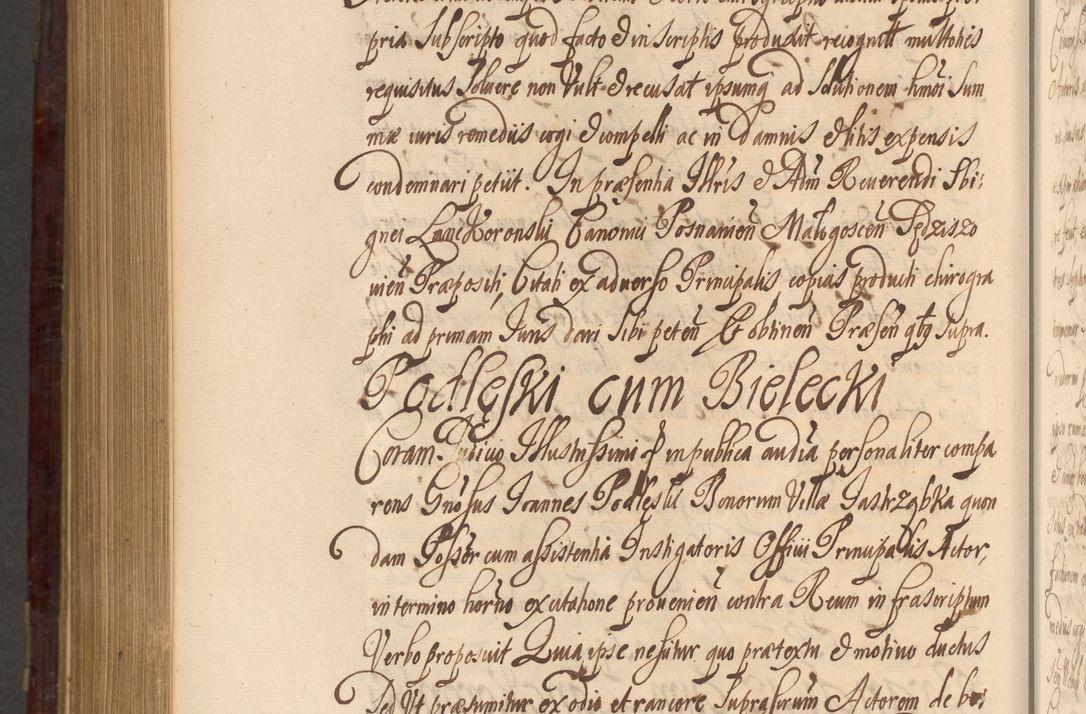 pria Subscripto quod facto & in scriptis produxit recognit multoties
requisitus Solvere non Vult & recusat ipsumq ad Solutionem hmõi Sum
mæ iuris remediis cogi & compelli ac in Damnis & litis expensis
condemnari petiit. In præsentia Illris & Adm Reuerendi Sbi:
gnei Lanckoronski Canonici Posnanien Małogoscen Pędziszo
uien Præpositi, Citati ex aduerso Principalis copias producti chirogra
phi ad primam Juris dari Sibi peten & obtinen Præsen qtq supra.
Podlęski cum Bielecki
Coram Judicio Illustrissimi & in publica audia personaliter compa
rens Gnosus Joannes Podlęski Bonorum Villæ Jastrząbka quon
dam Possor cum assistentia Instigatoris Officii Principalis Actor,
in termino horno ex citatione prouenien contra Reum infrascriptum
Verbo proposuit Quia ipse nescitur quo prætextu & motiuo ductus
Sed Ut præsumitur ex odio et rancore Suprascrium Actorem de bo: